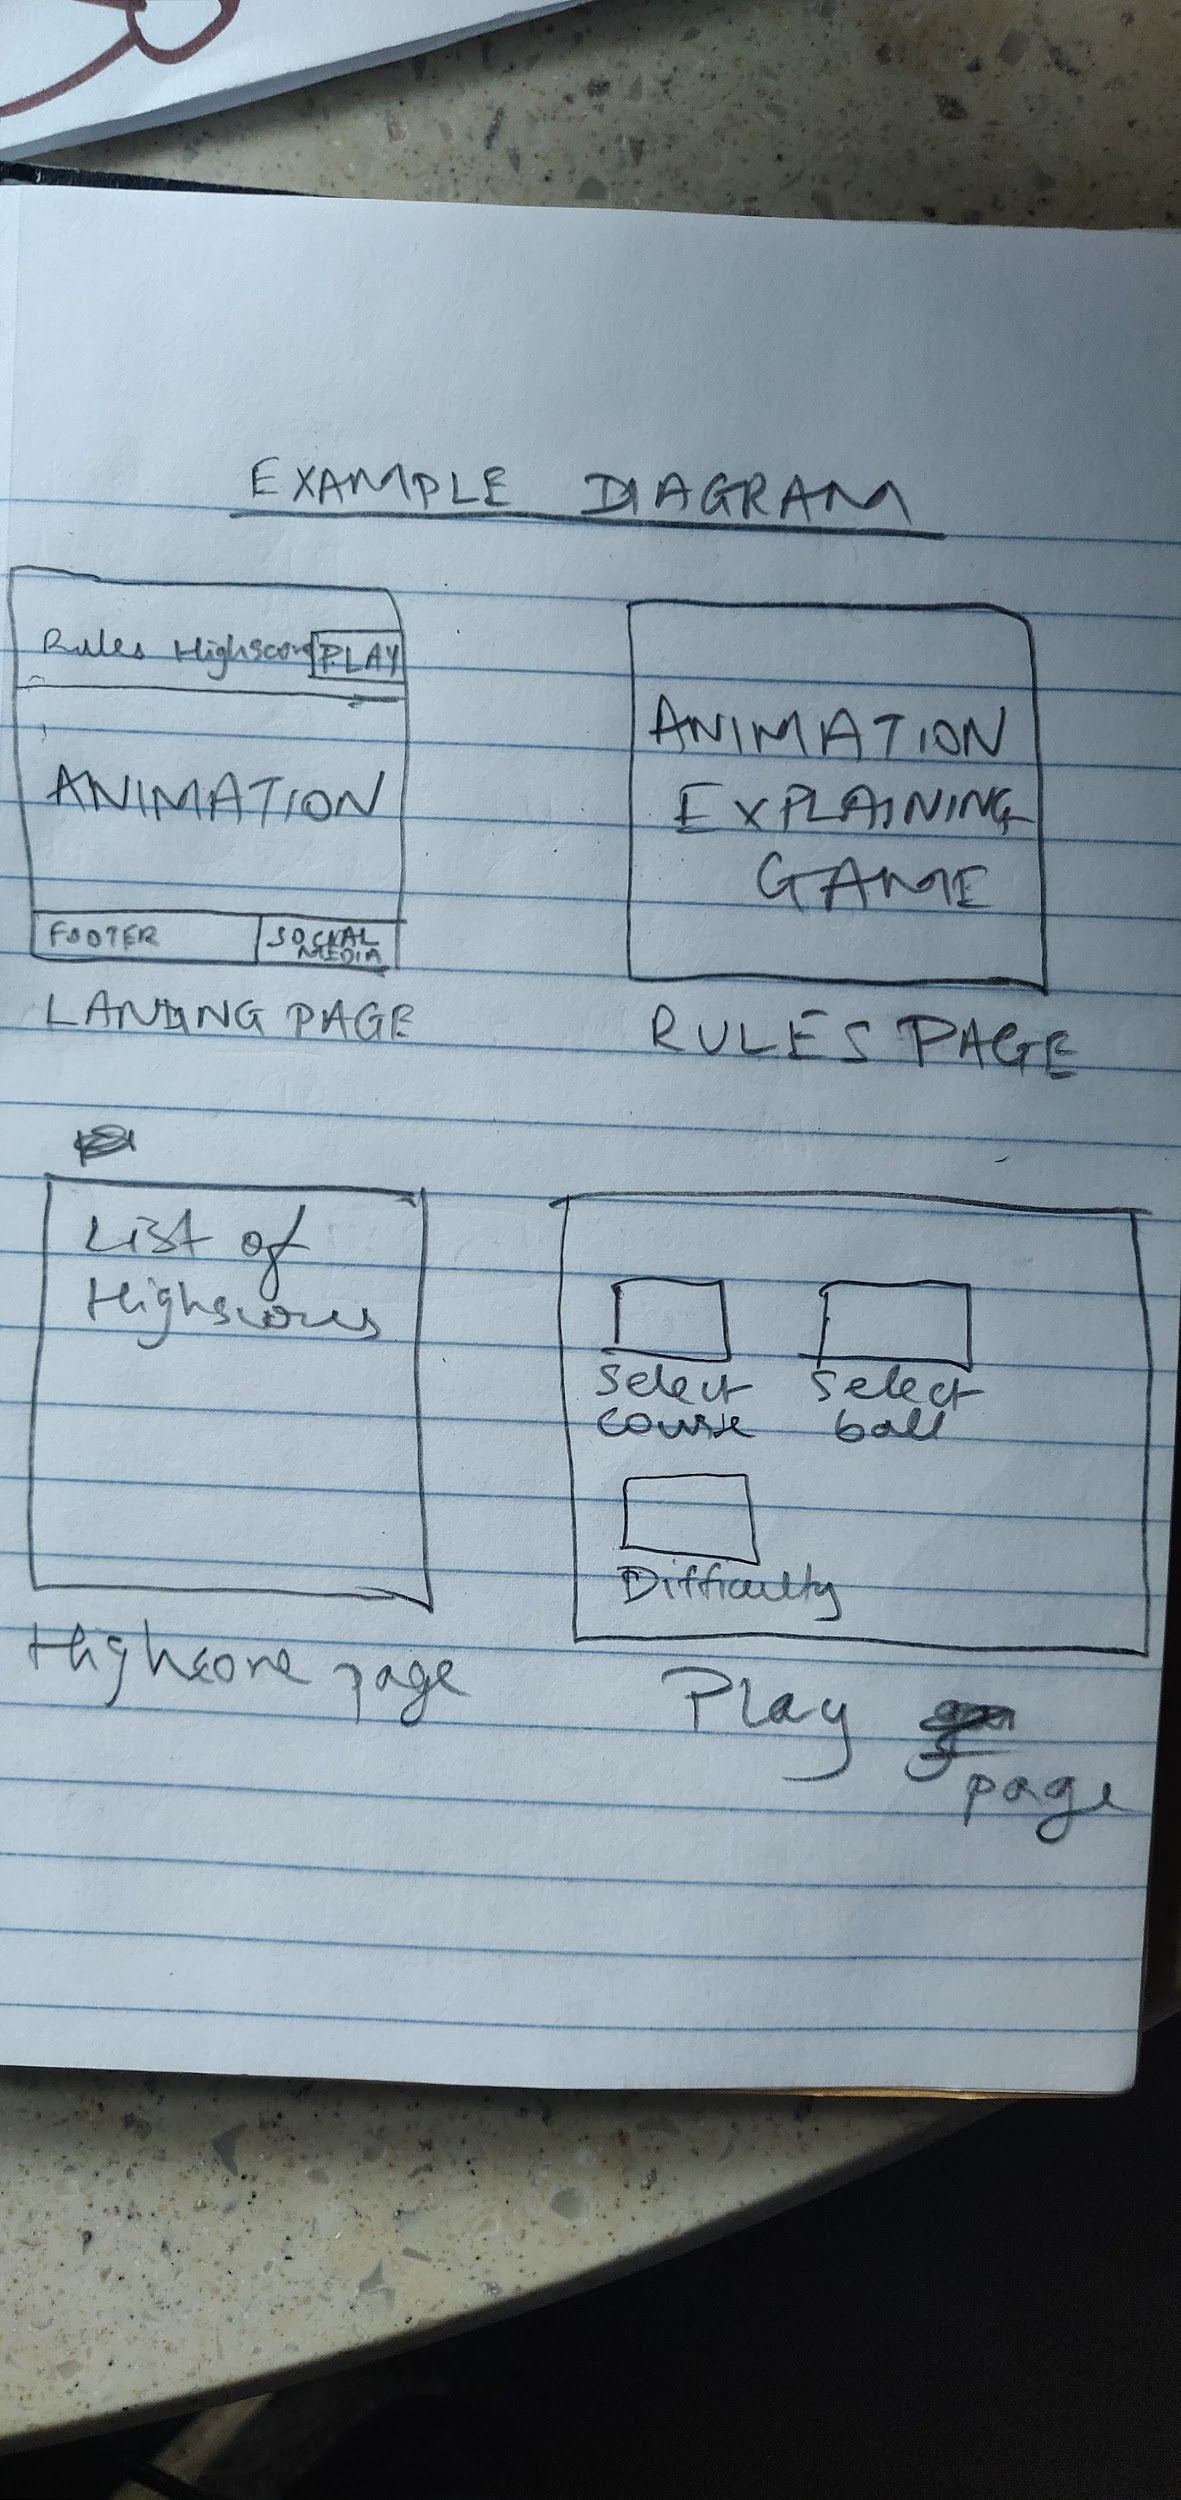 EXAMPLE DIAGRAM
Rules Highscore PLAY
ANIMATION
FOOTER
SOCIAL
MEDIA
LANDING PAGE
ANIMATION
EXPLAINING
GAME
RULES PAGE
List of
Highscores
Highscore page
Select
course
Select
ball
Difficulty
Play
page